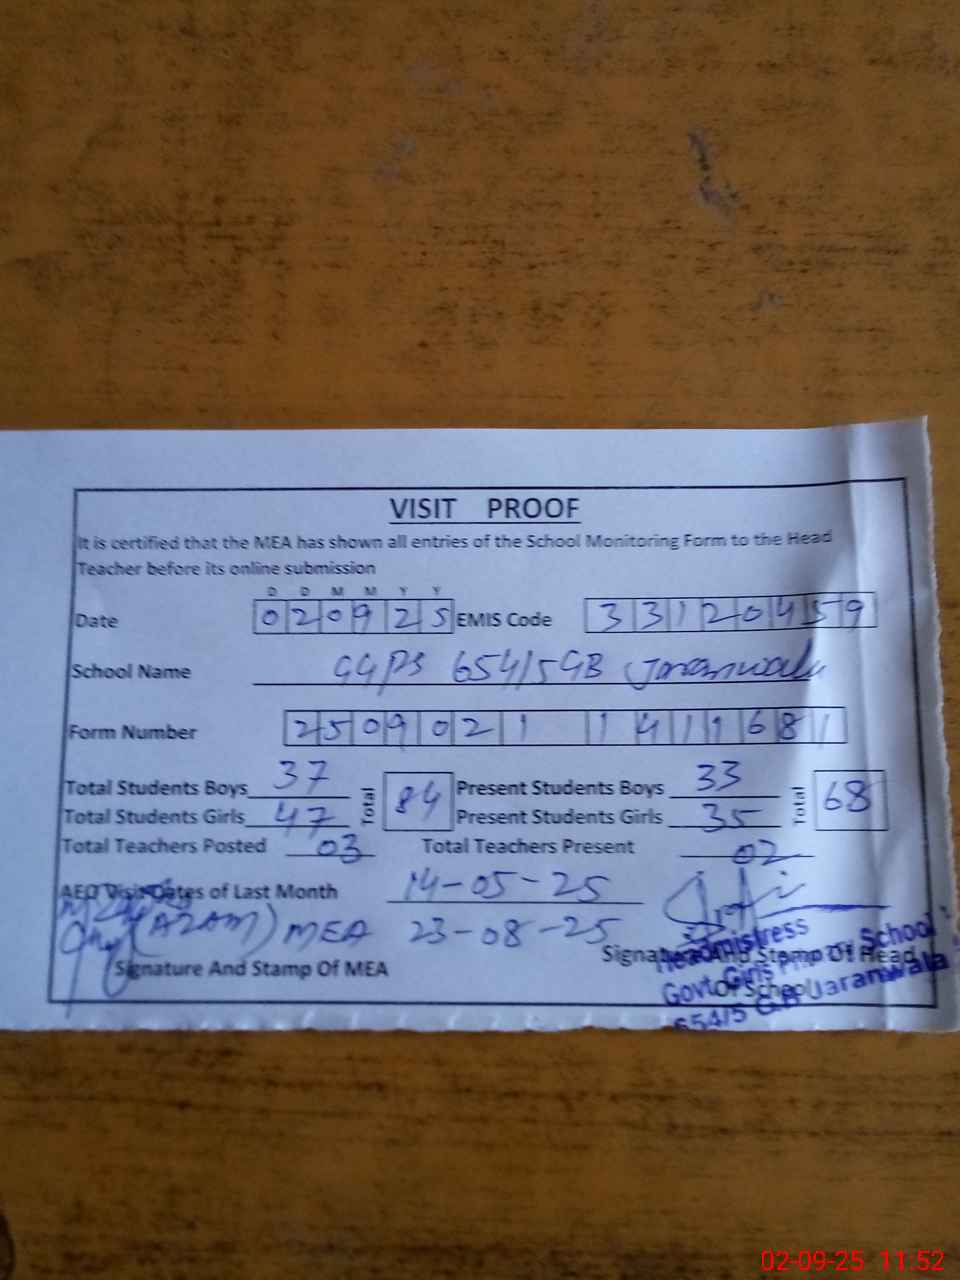 VISIT PROOF
It is certified that the MEA has shown all entries of the School Monitoring Form to the Head
Teacher before its online submission
D D M M Y Y
Date 020925 EMIS Code 33120459
School Name GGPS 654/5GB Jaranwala
Form Number 2509021 1411681
Total Students Boys 37 Total 84 Present Students Boys 33 Total 68
Total Students Girls 47 Present Students Girls 35
Total Teachers Posted 03 Total Teachers Present 02
AEO Visit Dates of Last Month 14-05-25
(AZAM) MEA 23-08-25
Signature And Stamp Of MEA Signature And Stamp Of Head
Of School
Headmistress
Govt. Girls Primary School
654/5 G.B Jaranwala
02-09-25 11:52